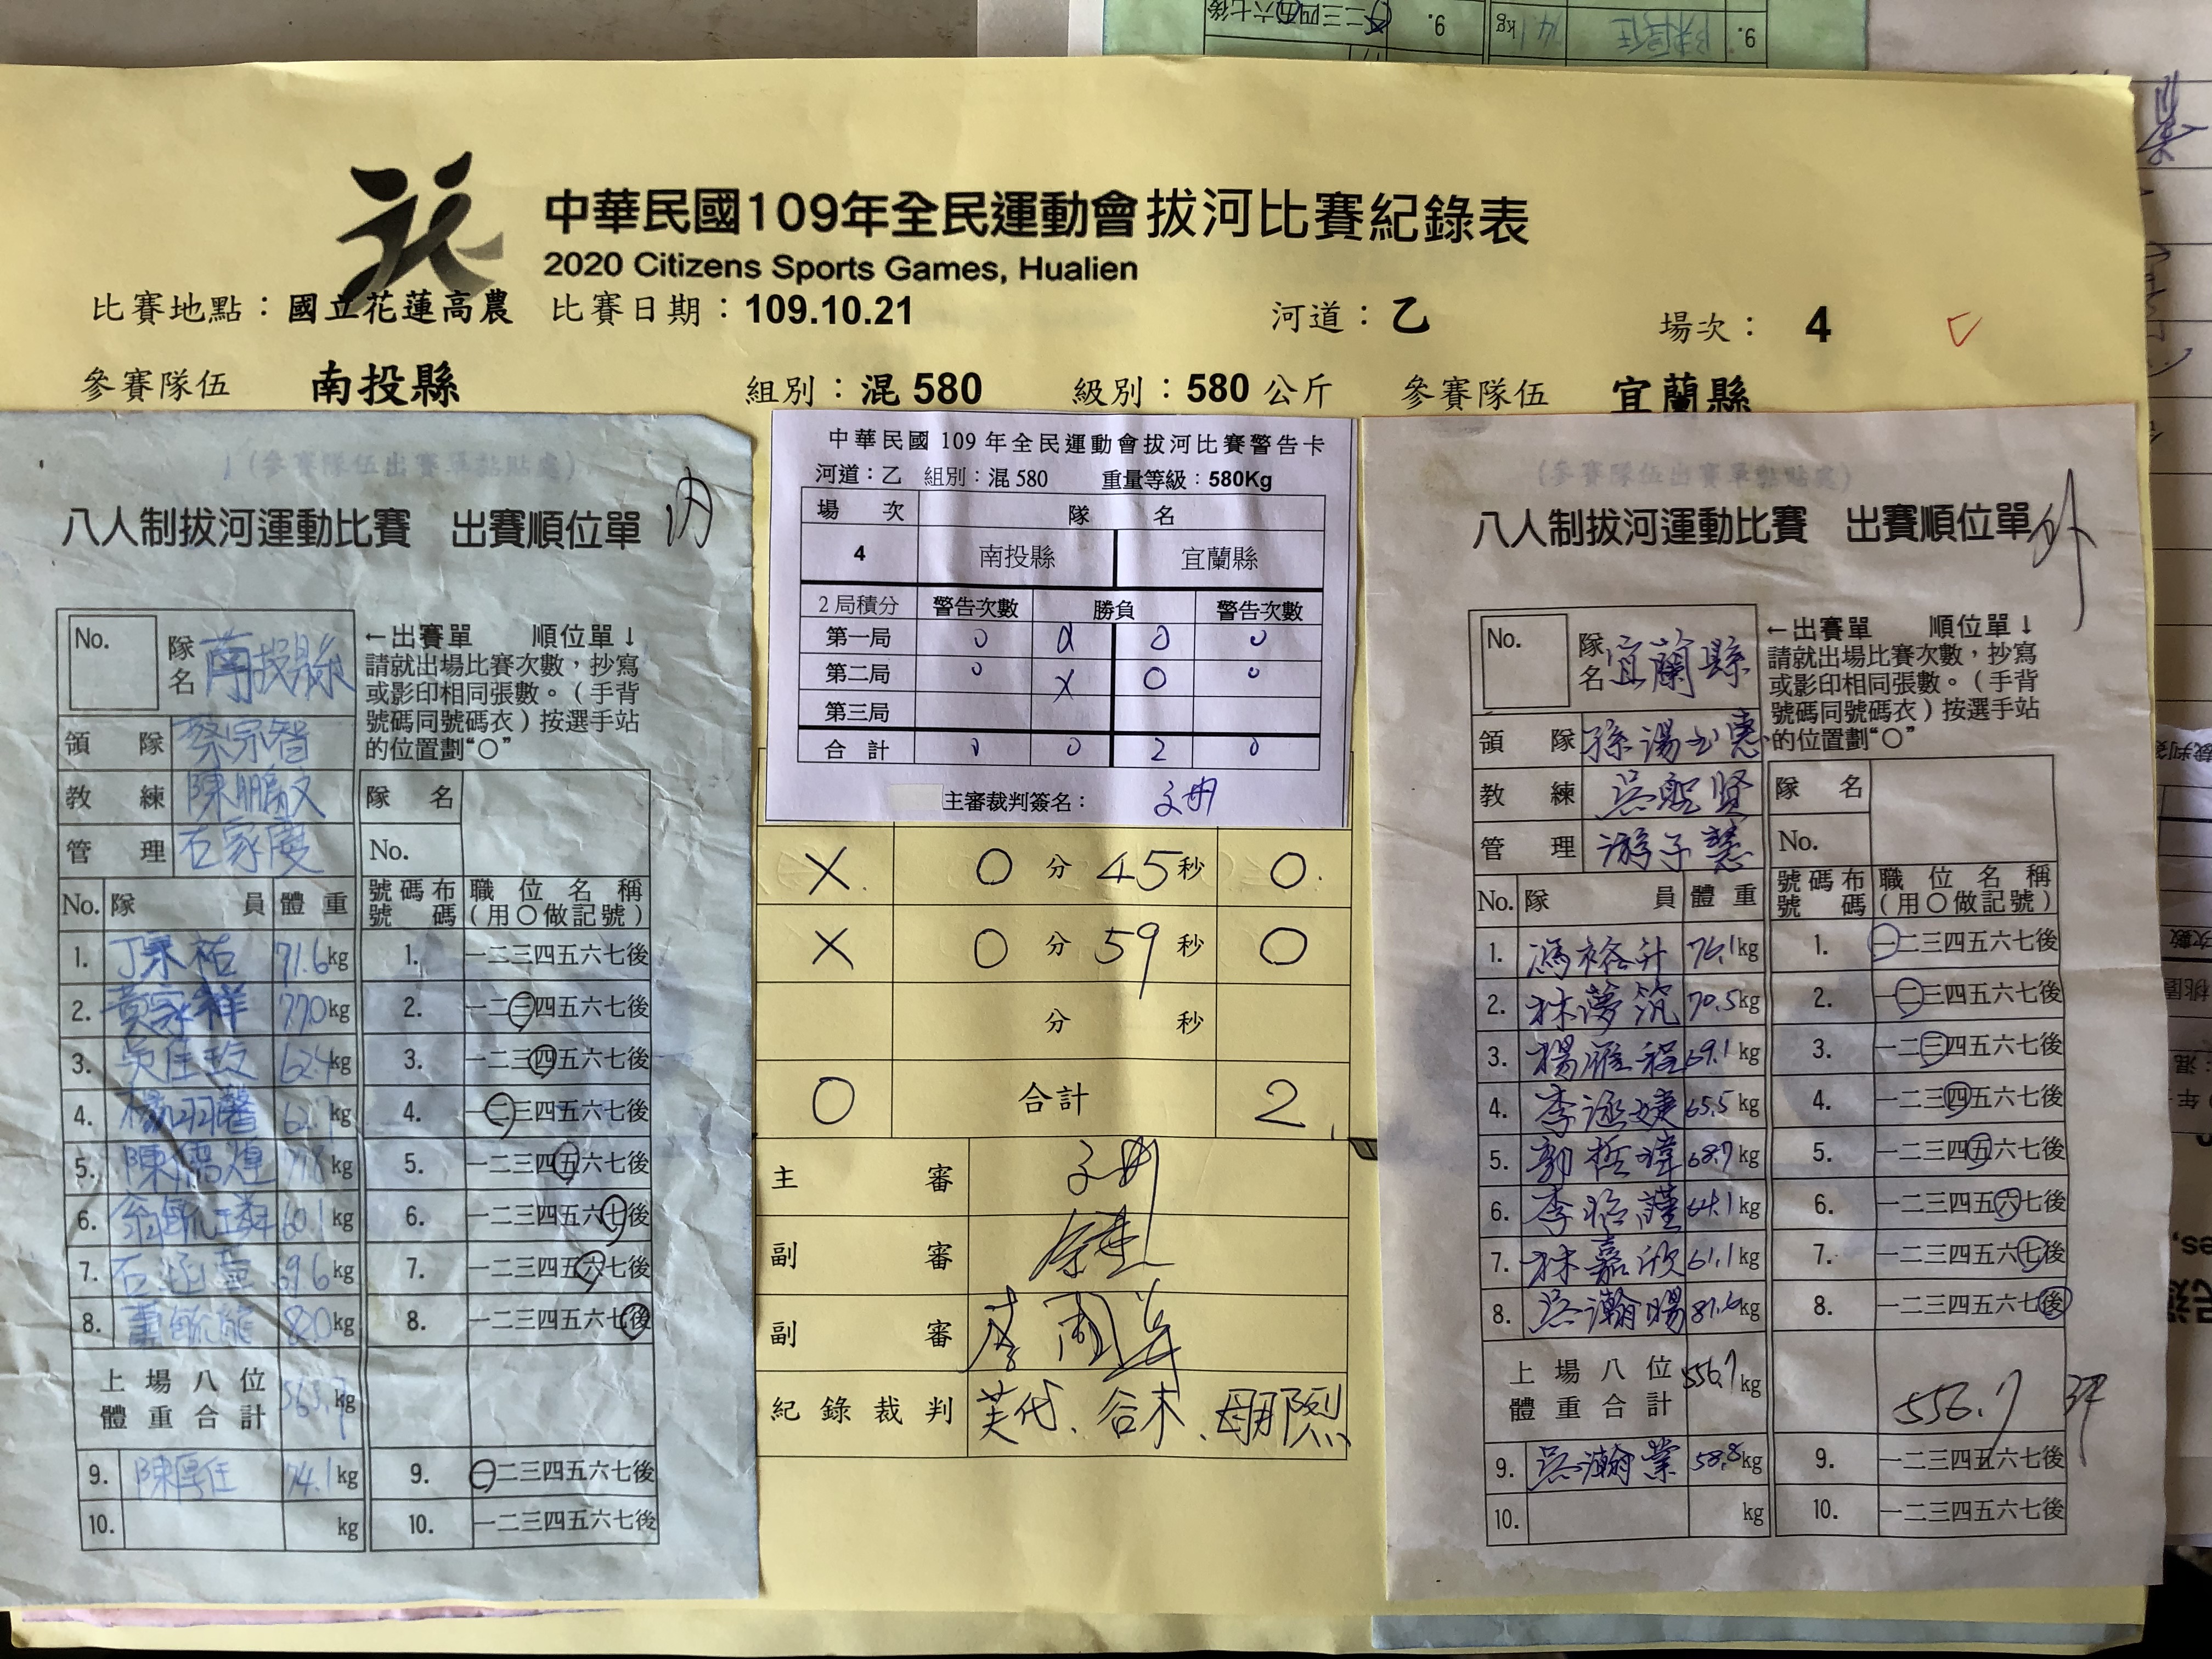 中華民國109年全民運動會拔河比賽紀錄表
2020 Citizens Sports Games, Hualien
比賽地點：國立花蓮高農 比賽日期：109.10.21 河道：乙 場次： 4
參賽隊伍 南投縣 組別：混 580 級別：580 公斤 參賽隊伍 宜蘭縣
(參賽隊伍出賽單黏貼處)
內
八人制拔河運動比賽 出賽順位單
No. 隊名 南投縣
←出賽單 順位單↓
請就出場比賽次數，抄寫
或影印相同張數。（手背
號碼同號碼衣）按選手站
的位置劃“○”
領 隊 蔡宗智
教 練 陳鵬文
管 理 石家慶
隊 名
No.
No. 隊 員 體 重 號碼布號碼 職位名稱(用○做記號)
1. 丁 祐 71.6kg 1. 一二三四五六七後
2. 黃家祥 77.0kg 2. 一二三四五六七後
3. 吳佳玫 62.4kg 3. 一二三四五六七後
4. 楊羽馨 62. kg 4. 一二三四五六七後
5. 陳儒煌 77.8kg 5. 一二三四五六七後
6. 60.1kg 6. 一二三四五六七後
7. 石 69.6kg 7. 一二三四五六七後
8. 蕭 82.0kg 8. 一二三四五六七後
上場八位體重合計 563.7kg
9. 陳厚任 74.1kg 9. 一二三四五六七後
10. kg 10. 一二三四五六七後
中華民國 109 年全民運動會拔河比賽警告卡
河道：乙 組別：混 580 重量等級：580Kg
場 次 隊 名
4 南投縣 宜蘭縣
2 局積分 警告次數 勝負 警告次數
第一局 0 X 0 0
第二局 0 X 0 0
第三局
合 計 0 0 2 0
主審裁判簽名：
X 0 分 45 秒 0
X 0 分 59 秒 0
分 秒
0 合計 2
主 審
副 審
副 審
紀 錄 裁 判 芙代、合木、毋那烈
(參賽隊伍出賽單黏貼處)
外
八人制拔河運動比賽 出賽順位單
No. 隊名 宜蘭縣
←出賽單 順位單↓
請就出場比賽次數，抄寫
或影印相同張數。（手背
號碼同號碼衣）按選手站
的位置劃“○”
領 隊 孫湯玉惠
教 練 吳聖賢
管 理 游子慧
隊 名
No.
No. 隊 員 體 重 號碼布號碼 職位名稱(用○做記號)
1. 馮裕升 76.1kg 1. 一二三四五六七後
2. 林夢筑 70.5kg 2. 一二三四五六七後
3. 楊雁程 69.1kg 3. 一二三四五六七後
4. 李涵婕 65.5kg 4. 一二三四五六七後
5. 郭哲瑋 68.7kg 5. 一二三四五六七後
6. 李悟謹 64.1kg 6. 一二三四五六七後
7. 林嘉欣 61.1kg 7. 一二三四五六七後
8. 吳瀚暘 81.6kg 8. 一二三四五六七後
上場八位體重合計 556.7kg 556.7
9. 吳瀚業 58.8kg 9. 一二三四五六七後
10. kg 10. 一二三四五六七後